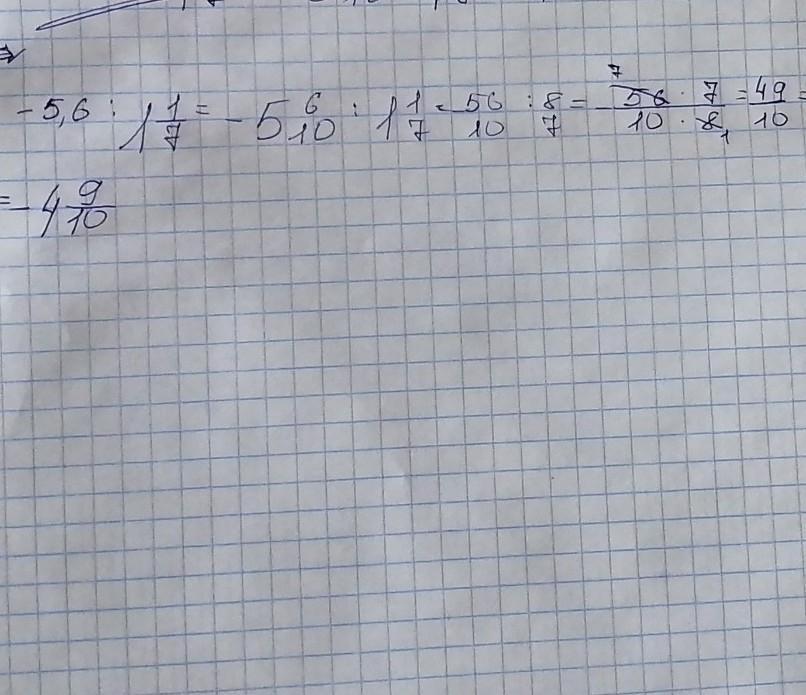 -5,6 : 1 1/7 = -5 6/10 : 1 1/7 = 56/10 : 8/7 = - 56 · 7 / 10 · 8 = 49/10 =
= -4 9/10